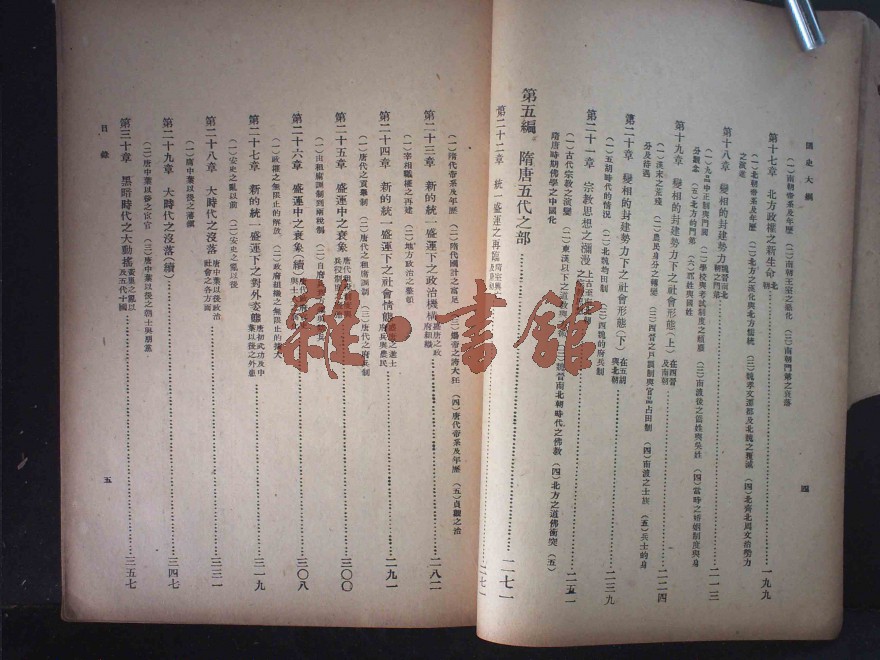 國史大綱
四
(一)南朝帝系及年歷 (二)南朝王室之惡化 (三)南朝門第之衰落
第十七章 北方政權之新生命 北朝 一九九
(一)北朝帝系及年歷 (二)北方之漢化與北方儒統 (三)魏孝文遷都及北魏之覆滅 (四)北齊北周文治勢力
之演進
第十八章 變相的封建勢力 魏晉南北朝之門第 二一三
(一)九品中正制與門閥 (二)學校與考試制度之頹廢 (三)南渡後之僑姓與吳姓 (四)當時之婚姻制度與身
分觀念 (五)北方的門第 (六)郡姓與國姓
第十九章 變相的封建勢力下之社會形態(上) 在西晉及南朝 二二四
(一)漢末之荒殘 (二)農民身分之轉變 (三)西晉之戶調制與官品占田制 (四)南渡之士族 (五)兵士的身
分及待遇
第二十章 變相的封建勢力下之社會形態(下) 在五胡與北朝 二三九
(一)五胡時代的情況 (二)北魏均田制 (三)西魏的府兵制
第二十一章 宗教思想之瀰漫 二五一
(一)古代宗教之演變 (二)東漢以下之道教 (三)魏晉南北朝時代之佛教 (四)北方之道佛衝突 (五)
隋唐時期佛學之中國化
第五編 隋唐五代之部 二七一
第二十二章 統一盛運之再臨 二七一
(一)隋代帝系及年歷 (二)隋代國計之富足 (三)煬帝之誇大狂 (四)唐代帝系及年歷 (五)貞觀之治
第二十三章 新的統一盛運下之政治機構 盛唐之政府組織 二八二
(一)宰相職權之再建 (二)地方政治之整頓
第二十四章 新的統一盛運下之社會情態 二九一
(一)唐代之貢舉制 (二)唐代之租庸調制 (三)唐代之府兵制
第二十五章 盛運中之衰象 三〇〇
(一)由租庸調制到兩稅制
第二十六章 盛運中之衰象(續) 三〇八
(一)政權之無限止的解放 (二)政府組織之無限止的擴大
第二十七章 新的統一盛運下之對外姿態 唐初武功及中葉以後之外患 三一九
(一)安史之亂以前 (二)安史之亂以後
第二十八章 大時代之沒落 唐中葉以後政治社會之各方面 三三一
(一)唐中葉以後之藩鎮
第二十九章 大時代之沒落(續) 三四七
(二)唐中葉以後之宦官 (三)唐中葉以後之朝士與朋黨
第三十章 黑暗時代之大動搖 黃巢之亂以及五代十國 三五七
目錄
五
雜書館